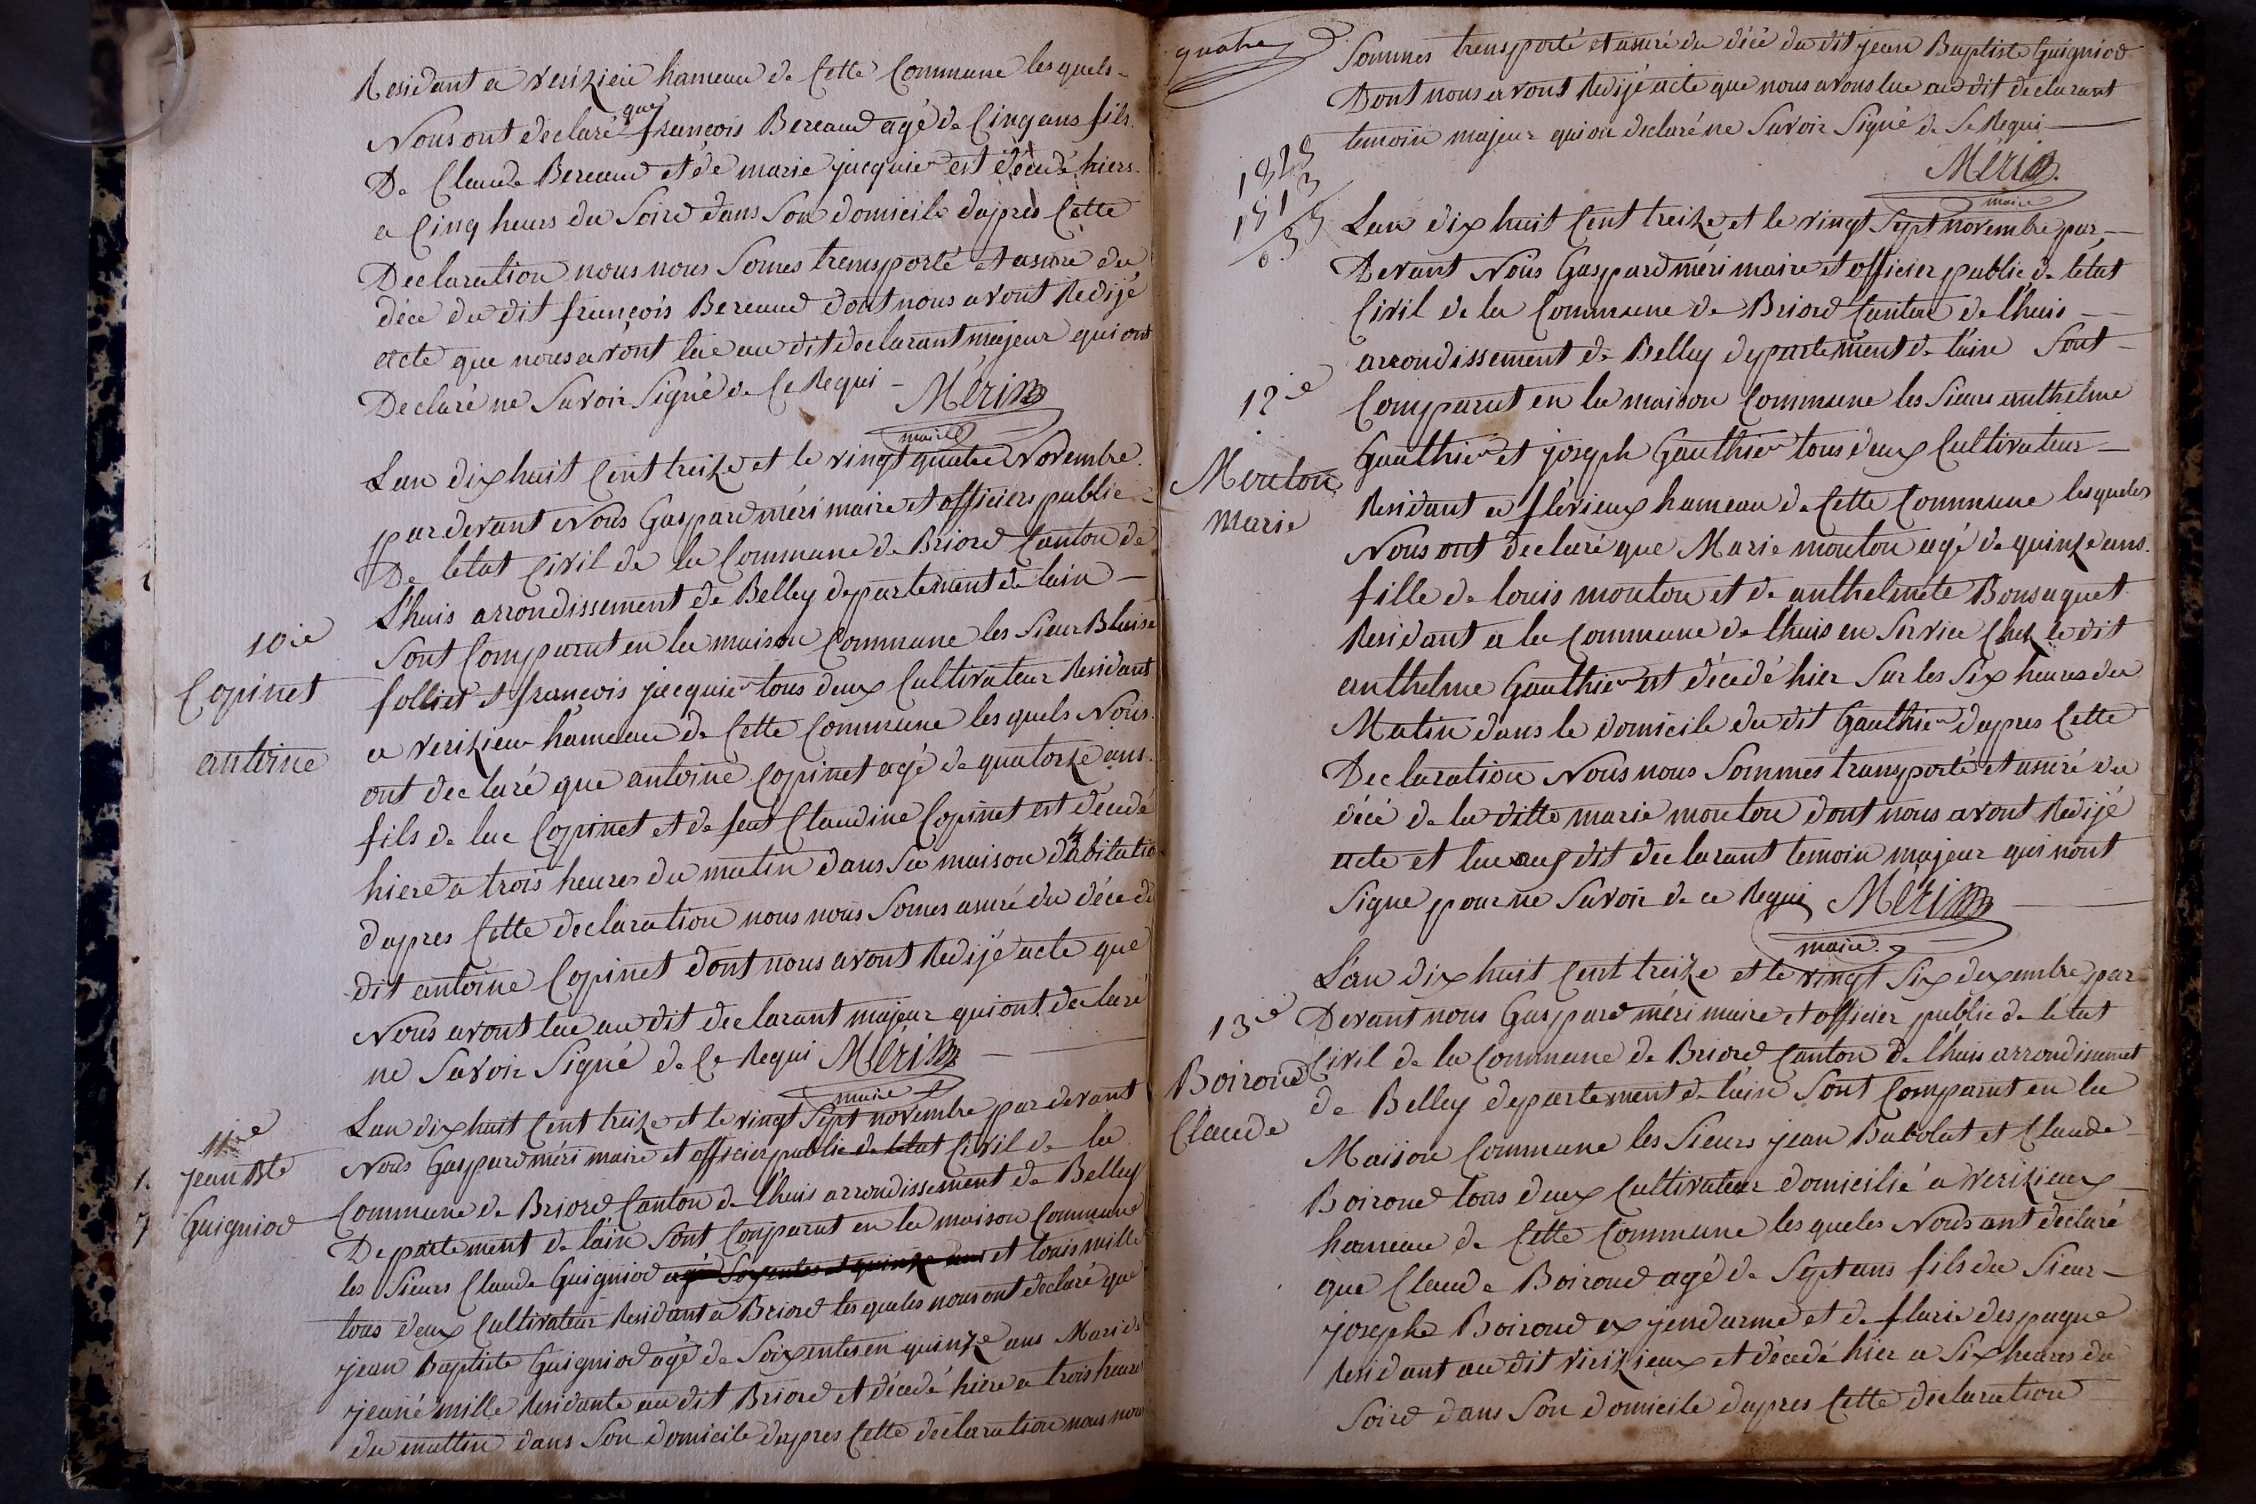 Residant a verizieu hameau de Cette Commune les quels
Nous ont declaré que françois Bereaud agé de Cinq ans fils
De Claude Bereaud et de marie jacquier est décedé hiers
a Cinq heurs du Soird dans Son domicile dapres Cette
Declaration nous nous Somes transporté et asuré du
déce du dit françois Bereaud dont nous avont Redijé
acte que nous avont lue au dit declarant majeur qui ont
Declaré ne Savoir Signé de Ce Requi Méri
maire
Lan dix huit Cent treize et le vingt quatre Novembre
par devant Nous Gaspard méri maire et officiers public
De letat Civil de la Commune de Briord Canton de
L'huis arrondissement de Belley departement de lain
10ie
Sont Comparut en la maison Commune les Sieur Blaise
Copinet
folliet et françois jacquier tous deux Cultivateur Residant
antoine
a verizieu hameau de Cette Commune les quels Nous
ont declaré que antoine Copinet agé de quatorze ans
fils de luc Copinet et de feut Claudine Copinet est décedé
hiere a trois heures du matin dans Sa maison dhabitatio
dapres Cette declaration nous nous Somes asuré du déce du
dit antoine Copinet dont nous avont Redijé acte que
Nous avont lue au dit declarant majeur qui ont declaré
ne Savoir Signé de Ce Requi Méri
maire
Lan dix huit Cent treize et le vingt Sept novembre par devant
11ie
Nous Gaspard méri maire et officier public de letat Civil de la
jean Bte
Commune de Briord Canton de l'huis arrondissement de Belley
Guigniod
Departement de lain Sont Comparut en la maison Commune
les Sieurs Claude Guigniod agé Soixentes et quinze ans et louis mille
tous deux Cultivateur Residant a Briord les queles nous ont declaré que
jean Baptiste Guigniod agé de Soixentes en quinze ans Mari de
jeané mille Residante au dit Briord et décedé hiere a trois heure
du mattin dans Son domicile dapres Cette declaration nous nous
quatre
Sommes transporté et asuré du décé du dit jean Baptiste Guigniod
Dont nous avont Redijé acte que nous avons lue aud dit declarant
temoin majeur qui on declaré ne Savoir Signé de Se Requi
Méri
maire
Lan dix huit Cent treize et le vingt Sept novembre par
Devant Nous Gaspard méri maire et officier public de létat
Civil de la Commune de Briord Canton de l'huis
arrondissement de Belley departement de lain Sont
12ie
Comparut en la maison Commune les Sieurs anthelme
Gauthier et joseph Gauthier tous deux Cultivateur
Mouton
Marie
Residant a flévieux hameau de Cette Commune lesqueles
Nous ont declaré que Marie mouton agé de quinze ans
fille de louis mouton et de anthelmete Bonsaquet
Residant a la Commune de l'huis en Service Chez le dit
anthelme Gauthier est décedé hier Sur les Six heures du
Matin dans le domicile du dit Gauthier dapres Cette
Declaration Nous nous Sommes transporté et asuré du
décé de la ditte marie mouton dont nous avont Redijé
acte et lue aux dit declarant temoin majeur qui nont
Signe pour ne Savoir de ce Requi Méri
maire
L'an dix huit Cent treize et le vingt Six dexembre par
13ie
Devant nous Gaspard méri maire et officier public de létat
Boiroud
Civil de la Commune de Briord Canton de l'huis arrondisemet
Claude
de Belley departement de l'ain Sont Comparut en la
Maison Commune les Sieurs jean Babolat et Claude
Boiroud tous deux Cultivateur domicilié a verizieux
hameau de Cette Commune les queles Nous ont declaré
que Claude Boiroud agé de Sept ans fils du Sieur
josephe Boiroud ex jendarme et de flarie despagne
Residant au dit virizieux et décedé hier a Six heures du
Soird dans Son domicile dapres Cette declaration